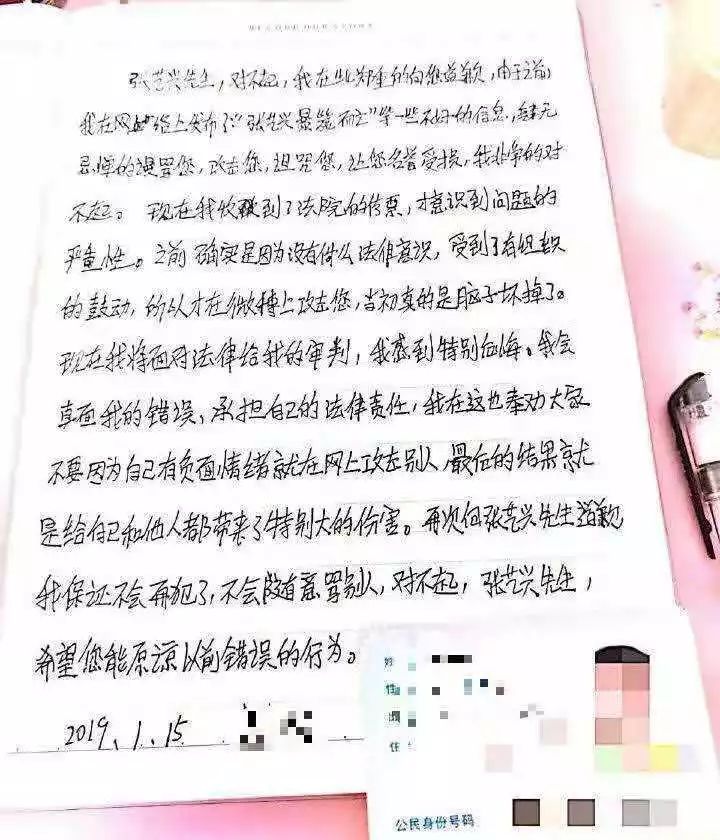 张艺兴先生，对不起，我在此郑重的向您道歉，由于之前
我在网络上发布了“张艺兴暴毙而亡”等一些不好的信息，肆无
忌惮的谩骂您，攻击您，诅咒您，让您名誉受损，我非常的对
不起。现在我收到了法院的传票，才意识到问题的
严重性。之前确实是因为没有什么法律意识，受到了有组织
的鼓动，所以才在微博上攻击您，当初真的是脑子坏掉了。
现在我将面对法律给我的审判，我感到特别后悔。我会
直面我的错误、承担自己的法律责任，我在这也奉劝大家
不要因为自己有负面情绪就在网上攻击别人，最后的结果就
是给自己和他人都带来了特别大的伤害。再次向张艺兴先生道歉
我保证不会再犯了，不会随意骂别人，对不起，张艺兴先生，
希望您能原谅以前错误的行为。
2019、1、15
姓
性
出
住
公民身份号码